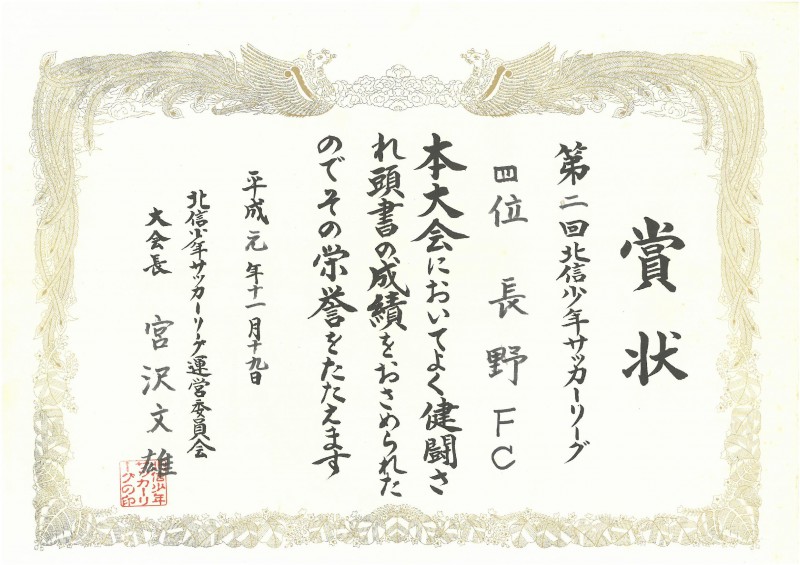 賞状
第二回北信少年サッカーリーグ
四位 長野FC
本大会においてよく健闘さ
れ頭書の成績をおさめられた
のでその栄誉をたたえます
平成元年十一月十九日
北信少年サッカーリーグ運営委員会
大会長 宮沢文雄
北信少年
サッカーリ
ーグの印